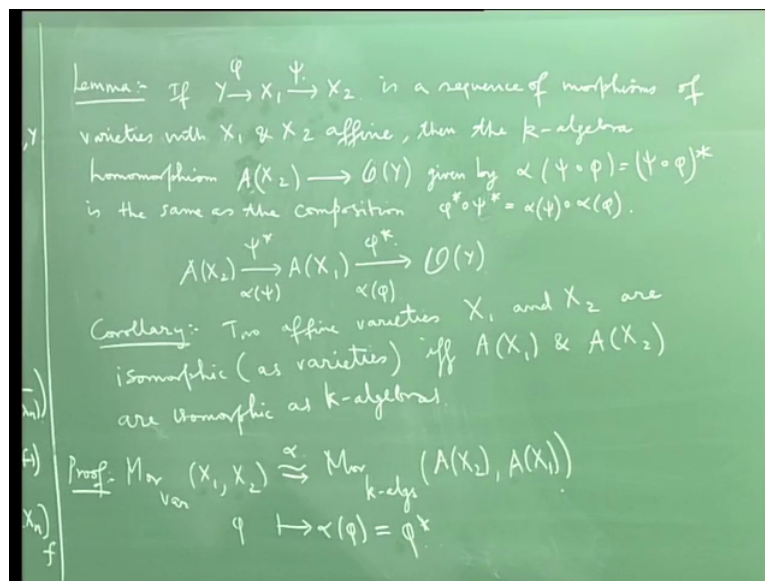 Lemma:- If Y →^φ X₁ →^ψ X₂ is a sequence of morphisms of
varieties with X₁ & X₂ affine, then the k-algebra
homomorphism A(X₂) ⟶ O(Y) given by α(ψ∘φ) = (ψ∘φ)*
is the same as the composition φ*∘ψ* = α(ψ)∘α(φ).
A(X₂) ⟶^{ψ*}_{α(ψ)} A(X₁) ⟶^{φ*}_{α(φ)} O(Y)
Corollary:- Two affine varieties X₁ and X₂ are
isomorphic (as varieties) iff A(X₁) & A(X₂)
are isomorphic as k-algebras.
Proof:- Mor_{var} (X₁, X₂) ≅^α Mor_{k-algs} (A(X₂), A(X₁))
φ ⟼ α(φ) = φ*